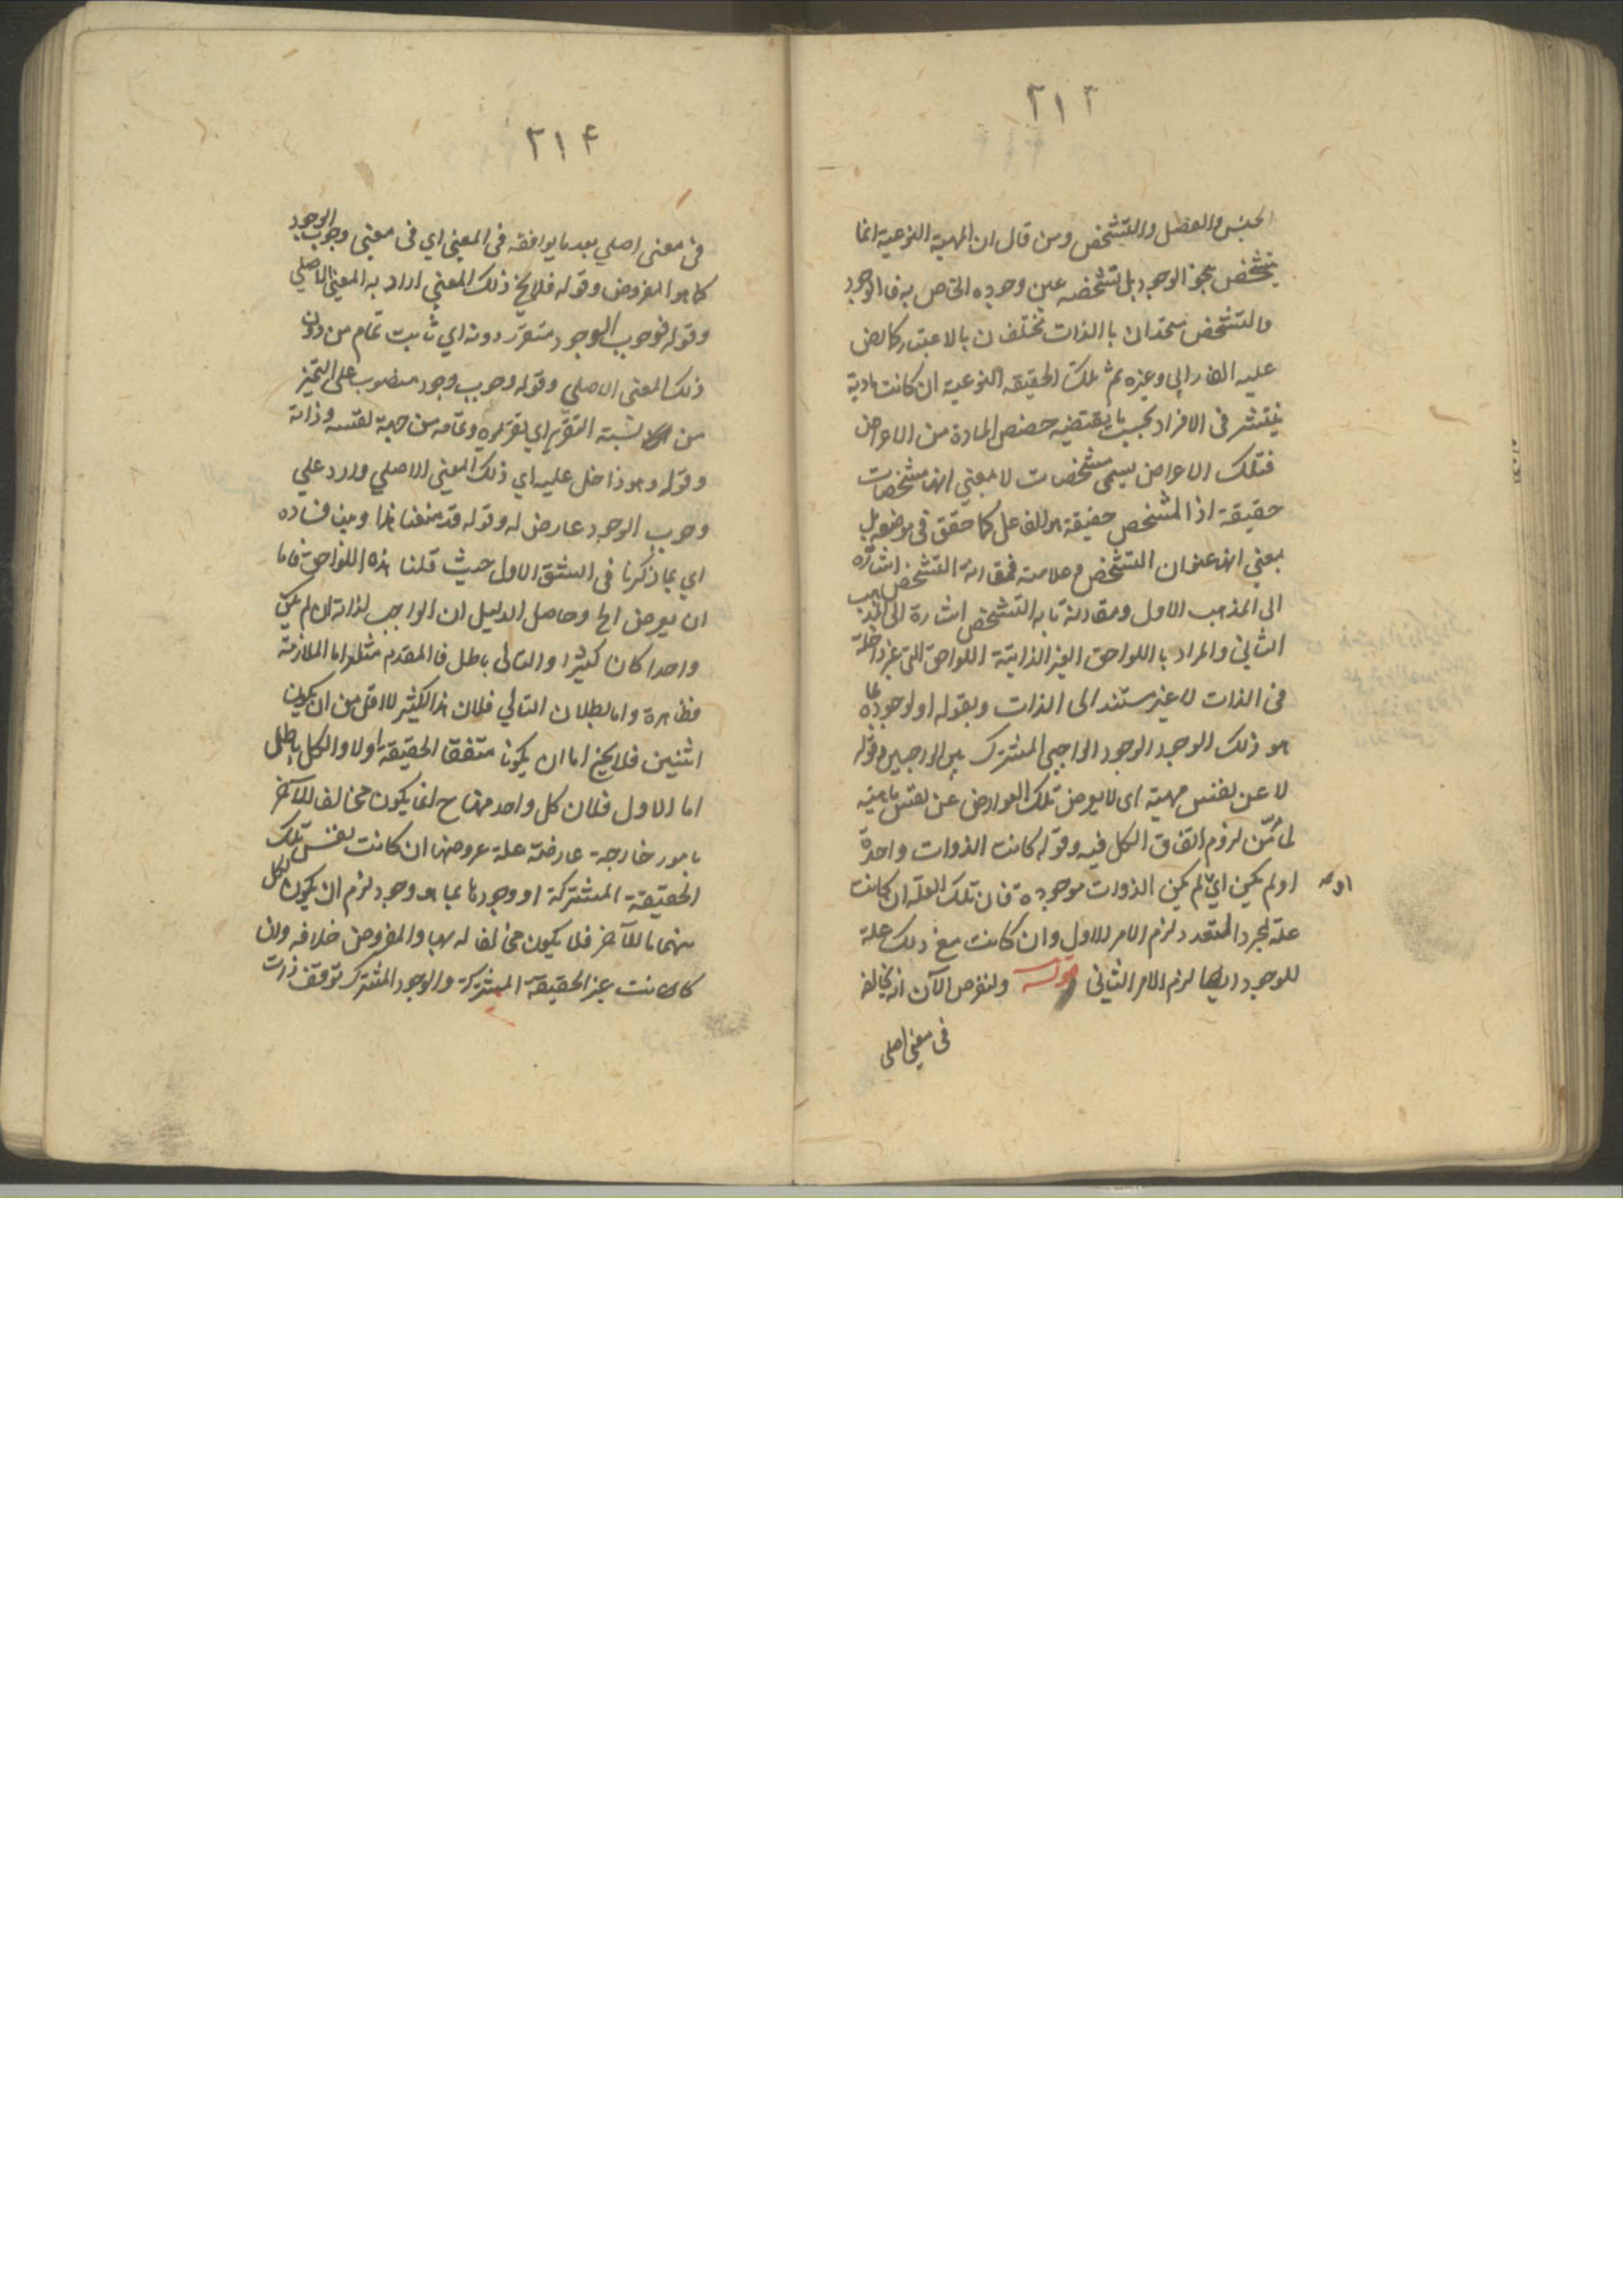 ٢١٣
الجنس والفصل والتشخص ومن قال ان المهية النوعية انما
يتشخص بنحو الوجود بل تشخصه عين وجوده الخاص به فالوجود
والتشخص متحدان بالذات مختلفان بالاعتبار كما نص
عليه الفارابي وغيره ثم تلك الحقيقة النوعية ان كانت مادية
ينتشر في الافراد بحسب ما يقتضيه حصص المادة من الاعراض
فتلك الاعراض يسمى مشخصات لا بمعني انها مشخصات
حقيقة اذ المشخص حقيقة هو الفاعل كما حقق في موضعه بل
بمعني انها عنوان التشخص وعلامته فمقارنة التشخص اشارة
الى المذهب الاول ومقارنة ما به التشخص اشارة الى المذهب
الثاني والمراد بااللواحق الغير الذاتية اللواحق التي غير داخلة
في الذات لا غير مستند الى الذات وبقوله او لوجود ما
هو ذلك الوجود الوجود الواجبي المشترك بين الواجبين وقوله
لا عن نفس مهيته اى لا يعرض تلك العوارض عن نفس ماهيته
لما مر من لزوم اتفاق الكل فيه وقوله كانت الذوات واحدة
او لم يكن اي لم يكن الذوات موجودة فان تلك العلة ان كانت
علة لمجرد التعدد لزم الامر الاول وان كانت مع ذلك علة
للوجود ايضا لزم الامر الثاني قوله ولنفرض الآن انه يخالفه
في معني اصلى
٢١۴
في معنى اصلي بعد ما يوافقه في المعني اي في معنى وجوب الوجود
كما هو المفروض وقوله فلا يخ ذلك المعني اراد به المعني الاصلي
وقوله فوجوب الوجود متقرر دونه اي ثابت تمام من دون
ذلك المعنى الاصلي وقوله وجوب وجود منصوب على التميز
من نسبة التقرر اي تقرره وتمامه من جهة نفسه وذاته
وقوله وهو داخل عليه اي ذلك المعني الاصلي وارد علي
وجوب الوجود عارض له وقوله قد منعنا هذا وبين فساده
اي بما ذكرنا في الشق الاول حيث قلنا هذه اللواحق فاما
ان يعرض الخ وحاصل الدليل ان الواجب لذاته لو لم يكن
واحدا كان كثيرا والتالى باطل فالمقدم مثله اما الملازمة
فظاهرة واما بطلان التالي فلان هذا الكثير لا اقل من ان يكون
اثنين فلا يخ اما ان يكونا متفقا الحقيقة او لا والكل باطل
اما الاول فلان كل واحد منهما ح انما يكون مخالفا للآخر
بامور خارجة عارضة علة عروضها ان كانت نفس تلك
الحقيقة المشتركة او وجودها بما هو وجود لزم ان يكون لكل
منهما ما للآخر فلا يكون مخالفا له بها والمفروض خلافه وان
كانت غير الحقيقة المشتركة والوجود المشترك توقف ذات